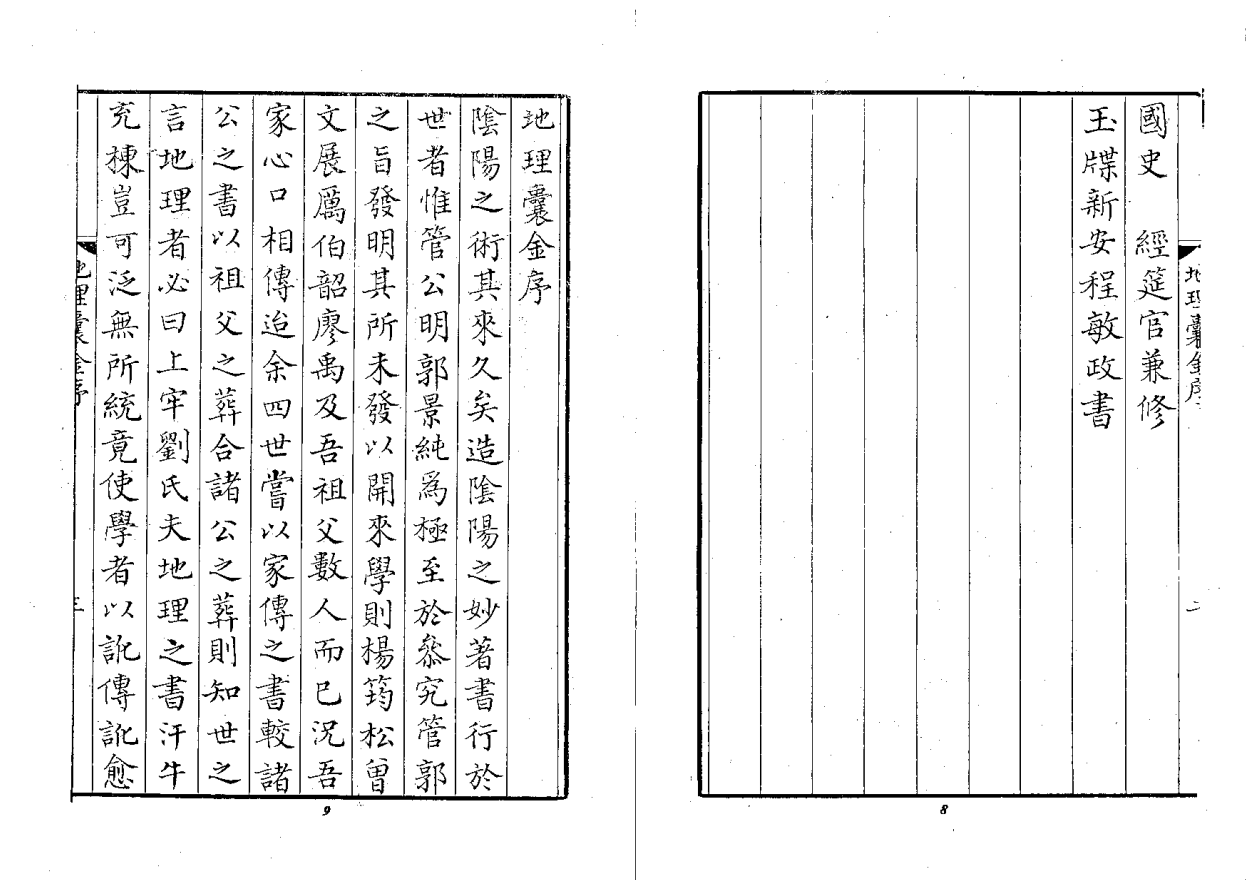 地理囊金序
二
國史　經筵官兼修
玉牒新安程敏政書
8
地理囊金序
陰陽之術其來久矣造陰陽之妙著書行於
世者惟管公明郭景純爲極至於叅究管郭
之旨發明其所未發以開來學則楊筠松曾
文展厲伯韶廖禹及吾祖父數人而已況吾
家心口相傳迨余四世嘗以家傳之書較諸
公之書以祖父之葬合諸公之葬則知世之
言地理者必曰上牢劉氏夫地理之書汗牛
充棟豈可泛無所統竟使學者以訛傳訛愈
地理囊金序
三
9